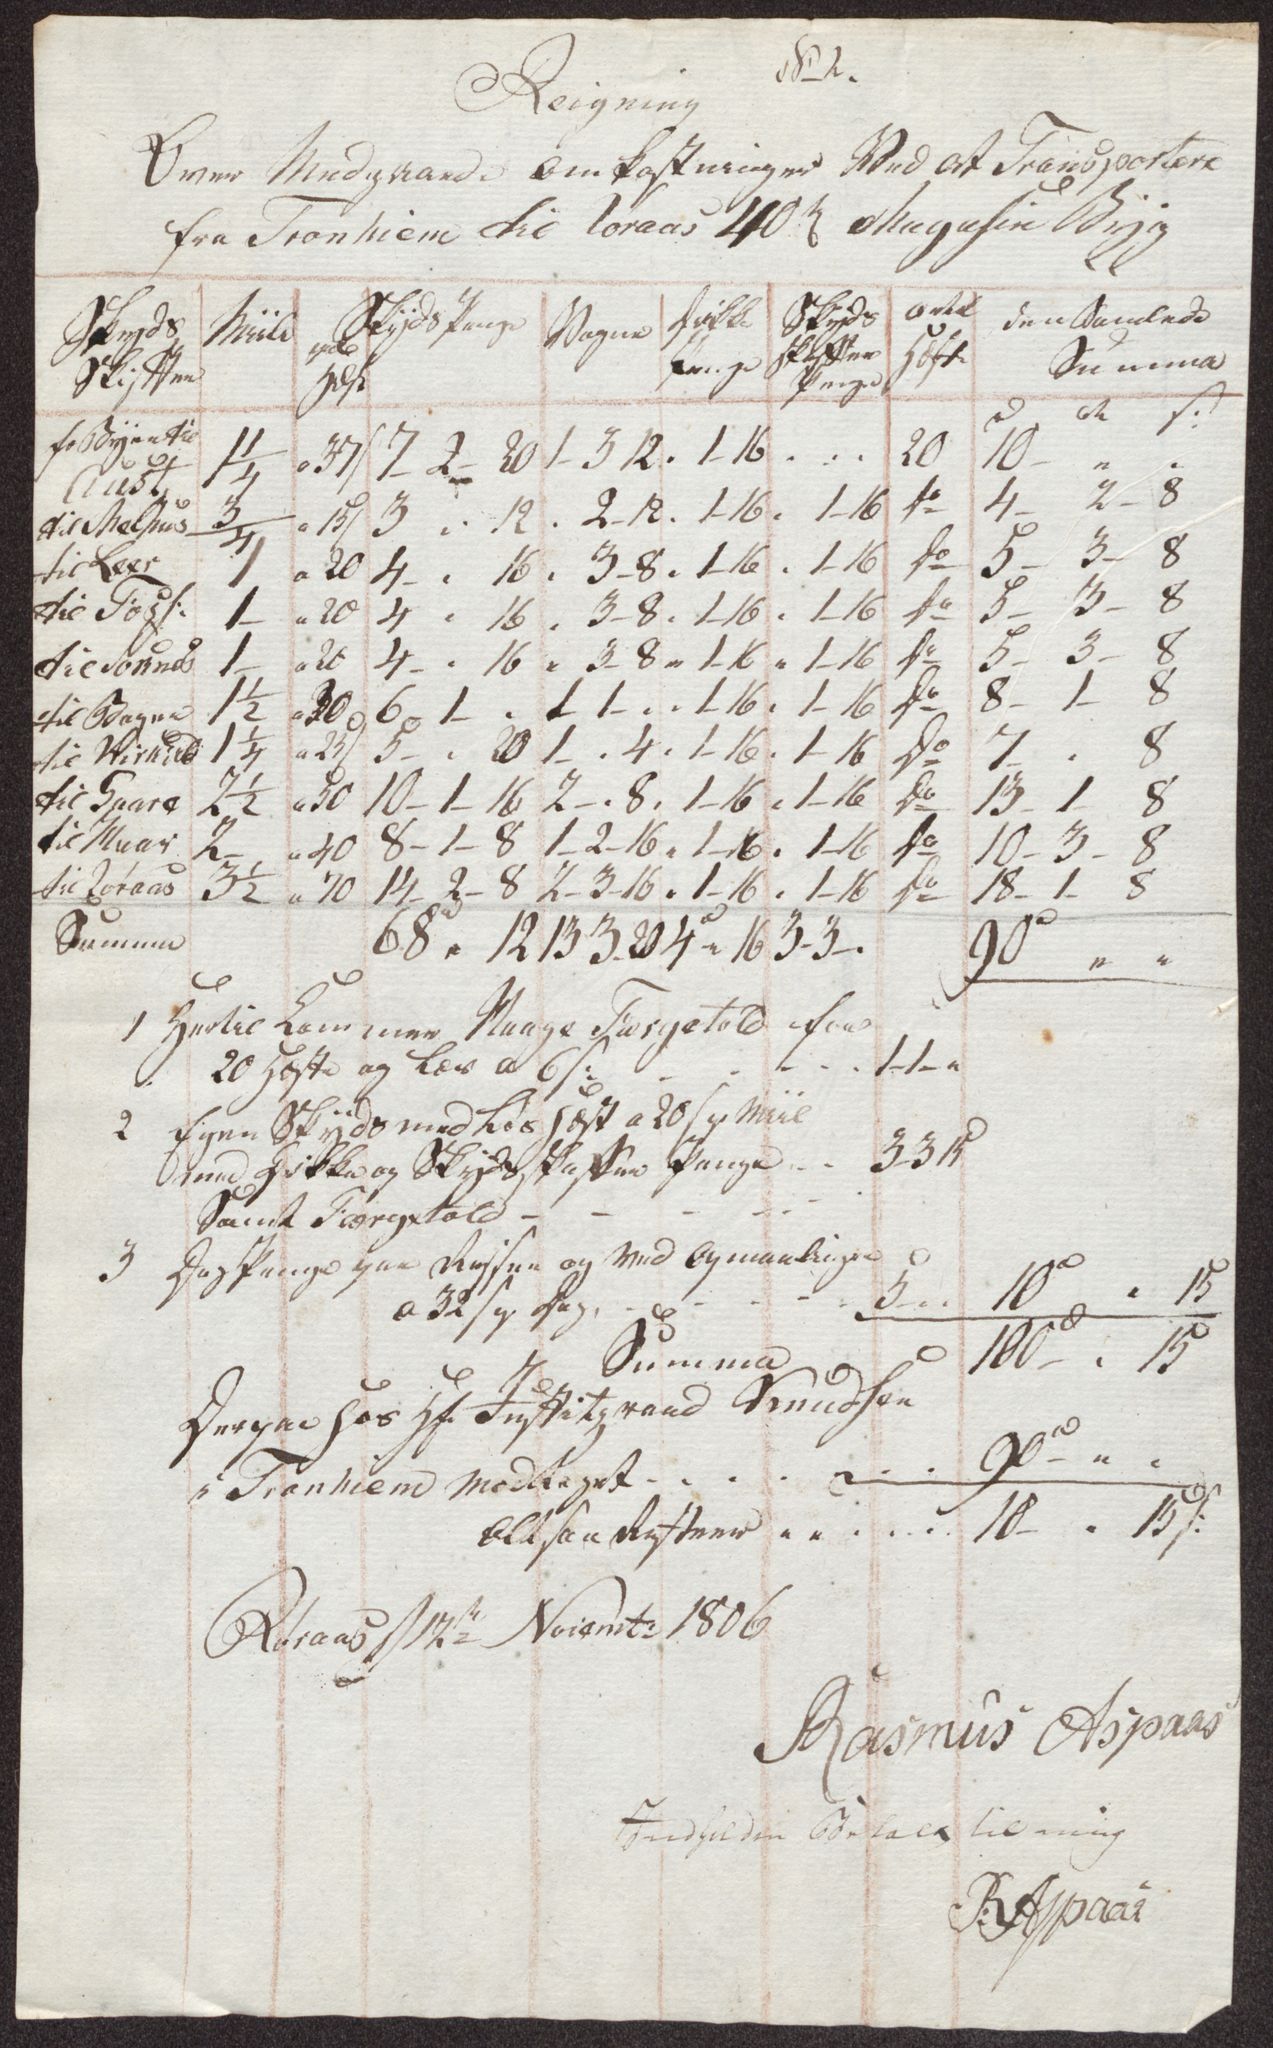 No 2.
Reigning
Over Medgaaende omkostninger Ved at Transportere
fra Tronhiem til Røraas 40 Magasin Byg
Skyds Skiften | Miile | Skyds Penge | Vogne | drikke Penge | Skyds skaffer Penge | antal Heste | den Samlede Summa
d ort s:
fr Byen til Aust 1 1/4 a 37/ 7 - 2 - 20 1 - 3 12 . 1-16 . . . 20 10 - " .
til Melhus 3/4 a 15/ 3 . 12 . 2-12 . 1-16 . 1-16 do 4 - 2 - 8
til Leer 1 a 20 4 - . 16 . 3-8 . 1-16 . 1-16 do 5 - 3 - 8
til Foss: 1 - a 20 4 . 16 . 3-8 . 1-16 . 1-16 do 5 - 3 - 8
til Soknes 1 - a 20 4 - . 16 " 3-8 " 1-16 " 1-16 do 5 - 3 - 8
til Bogen 1 1/2 a 30 6 - 1 - . 1 1 - . . 1-16 . 1-16 do 8 - 1 - 8
til 1 1/4 a 25/ 5 - . 20 1 - . 4 . 1-16 . 1-16 do 7 - . 8
til Gaare 2 1/2 a 50 10 - 1 - 16 2 - . 8 . 1-16 . 1-16 do 13 - 1 - 8
til Huar 2 - a 40 8 - 1 - 8 1 - 2 - 16 . 1-16 . 1-16 do 10 - 3 - 8
til Røraas 3 1/2 a 70 14 - 2 - 8 2 - 3 - 16 . 1-16 . 1-16 do 18 - 1 - 8
Summa 68 d " 12 13 3 - 20 4 d " 16 3-3 - . 90 d " "
1 Hertil kommer Færgetold for
20 Heste og Læs a 6 s: - - - 1-1- "
2 Egen Skyds med løs Hest a 20 s pr Miil
med Drikke og Skydsskaffer Penge - - 3-3 15
Samt Færgetold - - - - -
3 Dag Penge paa Reisen og Ved Opmaalingen
a 32 s pr dag. - - - - 5 - . . 10 d . 15
Summa 100 d - . 15
Derpaa hos Hr Justitzraad Knudsen
i Tronhiem modtaget - . . . . . . 90 d - " .
Altsaa Rester " " . . . . 10 - . 15 s:
Røraas d 12te Novembr: 1806
Rasmus Aspaas
Betalt til mig
R Aspaas